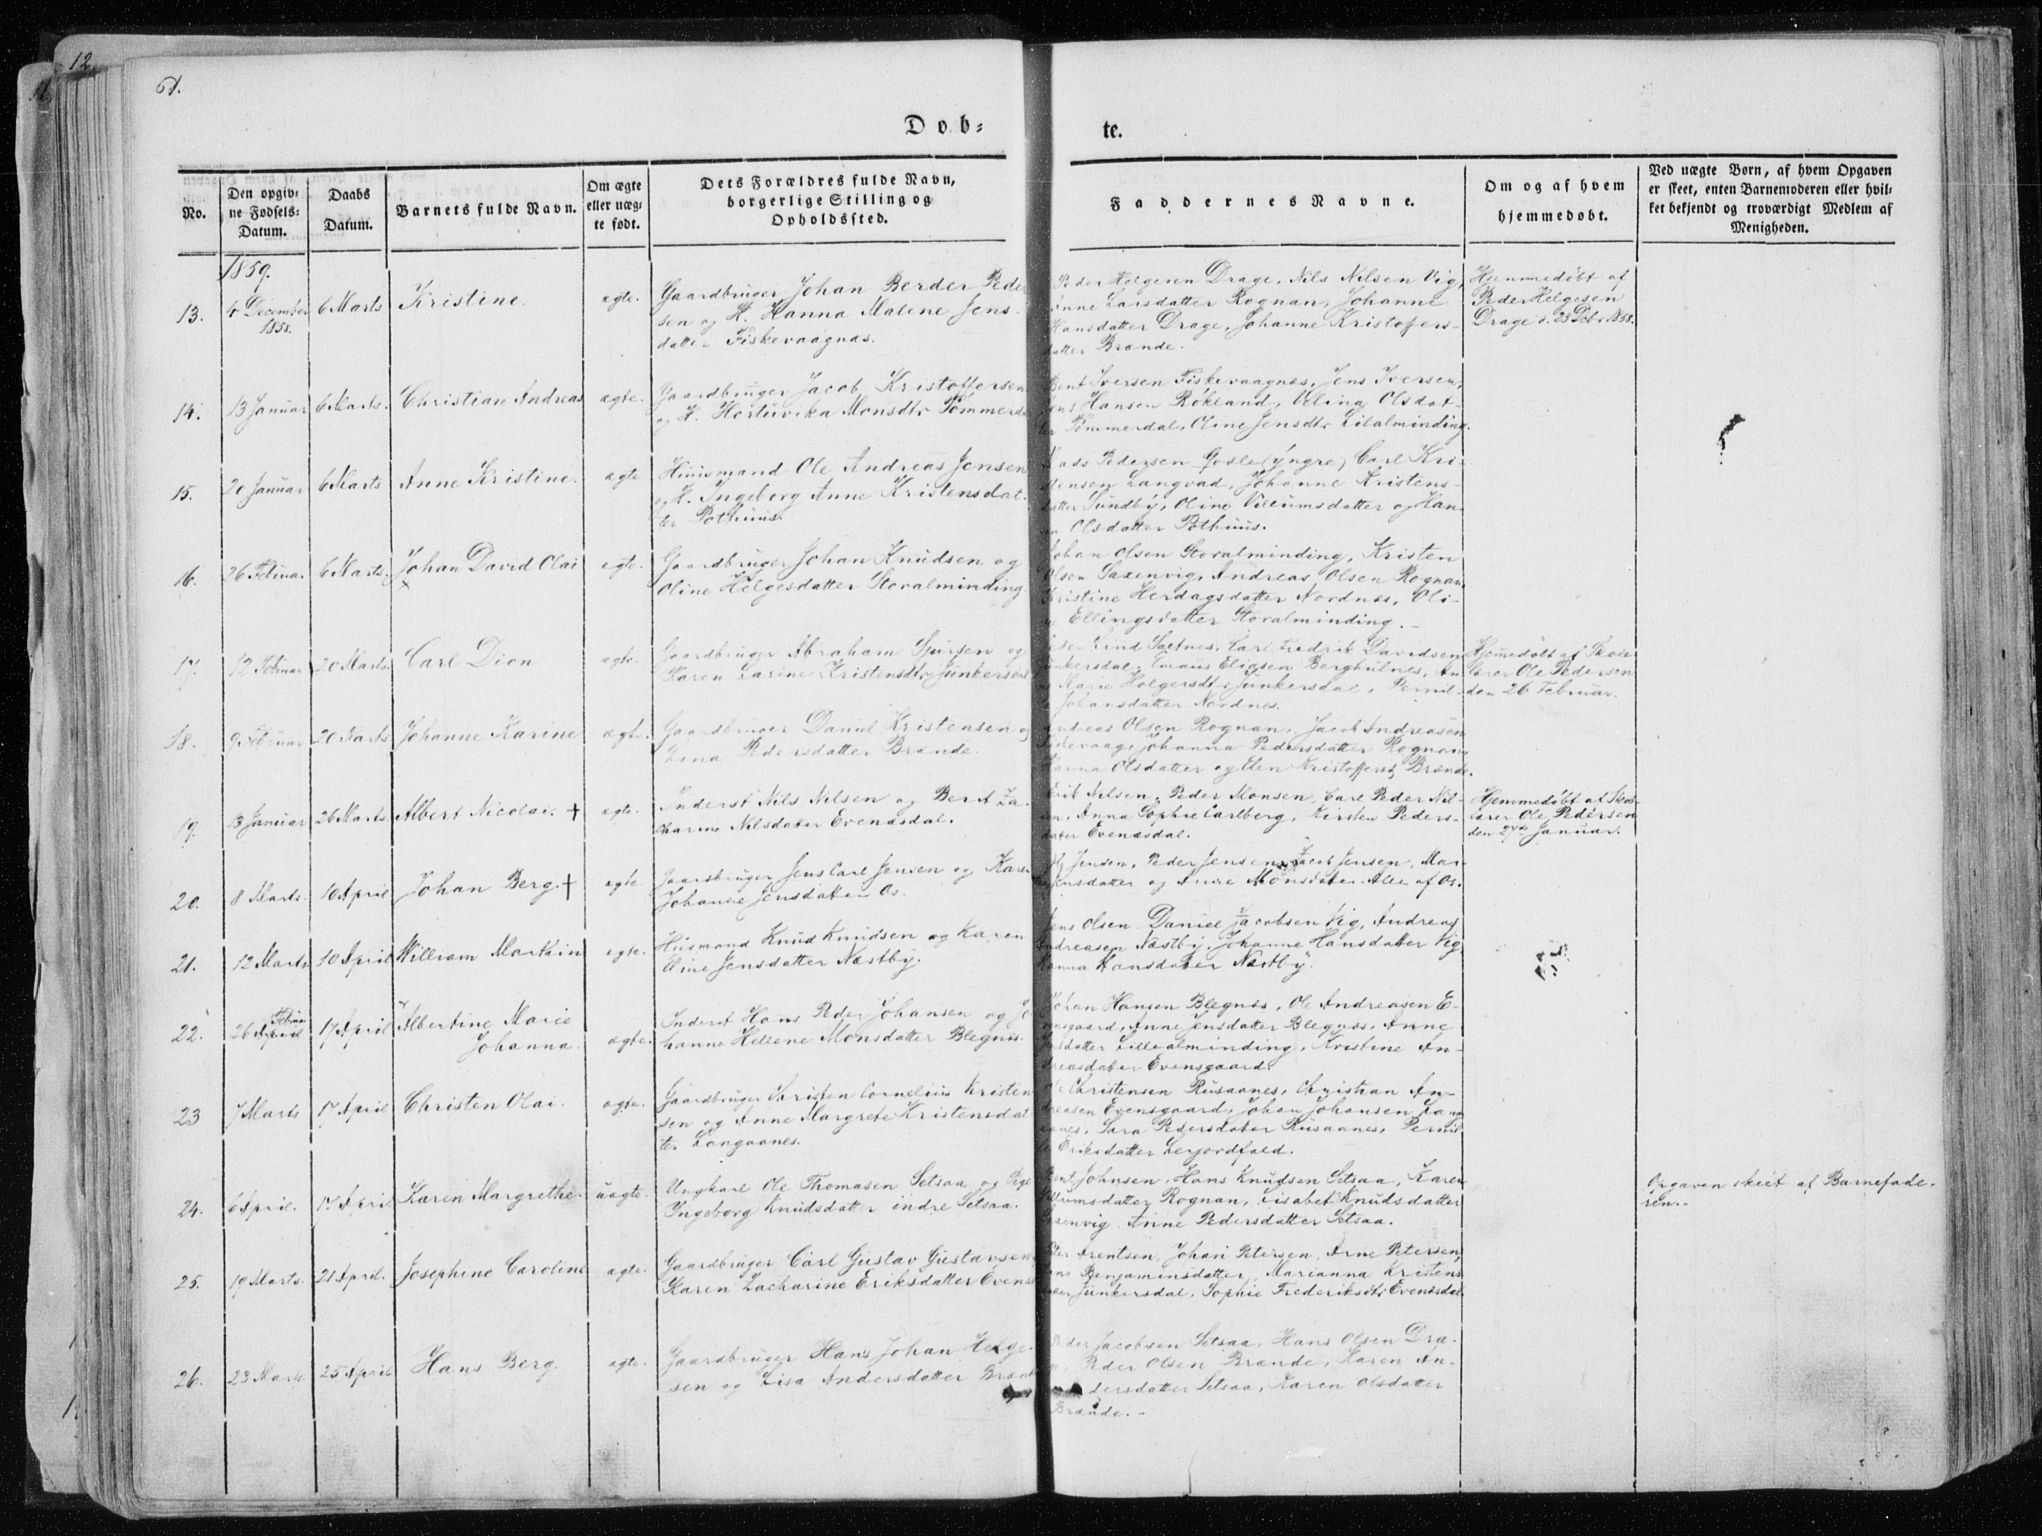 12
61.
Dob=
te.
No.
Den opgiv=
ne Fødsels=
Datum.
Daabs
Datum.
Barnets fulde Navn.
Om ægte
eller uæg=
te født.
Dets Forældres fulde Navn,
borgerlige Stilling og
Opholdssted.
Faddernes Navne.
Om og af hvem
hjemmedøbt.
Ved uægte Børn, af hvem Opgaven
er skeet, enten Barnemoderen eller hvil=
ket bekjendt og troværdigt Medlem af
Menigheden.
1859.
13.
4 December
1858.
6 Marts
Kristine.
ægte.
Gaardbruger Johan Berder Peder
sen og H. Hanna Malene Jens-
datter Fiskevaagnæs.
Peder Holgersen Drage, Nils Nilsen Vig,
Anne Larsdatter Rognan, Johanne
Hansdatter Drage, Johanne Kristofers-
datter Brænde.
Hjemmedøbt af
Peder Helgesen
Drage d. 25 Dcb. 1858.
14.
13 Januar
6 Marts.
Christian Andreas
ægte.
Gaardbruger Jacob Kristoffersen
og H. Monsdtr Tømmerda
Bent Iversen Fiskevaagnæs, Jens Iversen,
Jens Hansen Røkland, Olsdat-
ter Tømmerdal, Oline Jensdtr Lilalminding.
15.
20 Januar
6 Marts
Anne Kristine.
ægte
Huusmand Ole Andreas Jensen
og H. Ingeborg Anne Kristensdat.
ter Pothuus.
Pedersen (yngre) Carl Kri-
stensen Langvad, Johanne Kristens-
datter Sundby, Oline Villumsdatter og Han-
na Olsdatter Pothuus.
16.
26 Februar.
6 Marts.
Johan David Olai
×
ægte.
Gaardbruger Johan Knudsen og
Oline Helgesdatter Storalminding
Johan Olsen Storalminding, Kristen
Olsen Saxenvig, Andreas Olsen Rognan,
Kristine Herdagsdatter Nordnæs, Oli-
ne Ellingsdatter Storalminding.
17.
12 Februar
20 Marts.
Carl Dion
ægte.
Gaardbruger Abraham Sjursen og
Karen Zarine Kristensdtr Junkersdal
Peder Lind Saltnes, Carl Fredrik Davidsen
Junkersdal, Emaus Eliasen Berghulnes, An
ne Marie Holgersdtr Junkersdal, Pernil-
le Johansdatter Nordnes.
Hjemmedøbt af Skole
lærer Ole Pedersen
den 26 Februar.
18.
9 Februar
20 Marts
Johanne Karine
ægte.
Gaardbruger Daniel Kristensen og
Lena Pedersdatter Brænde.
Andreas Olsen Rognan, Jacob Andreasen
Johanna Pedersdatter Rognan,
Hanna Olsdatter og Elen Kristoffersd. Brænde.
19.
13 Januar
26 Marts.
Albert Nicolai. †
ægte.
Inderst Nils Nilsen og Berit Za-
charine Nilsdatter Evenæsdal.
Erik Nilsen, Peder Monsen, Carl Peder Nil-
sen, Anna Sophie Carlberg, Kirsten Peders-
datter Evenæsdal.
Hjemmedøbt af Skol-
lærer Ole Pedersen
den 27de Januar.
20.
8 Marts.
10 April
Johan Berg. †
ægte
Gaardbruger Jens Carl Jensen og Karen
Johanne Jensdatter Os.
Jensen, Peder Jensen, Jacob Jensen, Mar-
Jensdatter og Anne Monsdatter Alle af Os.
21.
12 Marts.
10 April
William Marthin
ægte.
Husmand Knud Knudsen og Karen
Oline Jensdatter Næstby.
Jens Olsen, Daniel Jacobsen Vig, Andreas
Andreasen Næstby, Johanne Hansdatter Vig,
Hanna Hansdatter Næstby.
22.
Februar
26 April
17 April
Albertine Marie
Johanna.
ægte.
Inderst Hans Peder Johansen og Jo
hanne Hellene Monsdatter Blegnæs.
Johan Hansen Blegnæs, Ole Andreasen E-
vensgaard, Anne Jensdatter Blegnæs, Anne
datter Lillealminding, Kristine An-
dreasdatter Evensgaard.
23
7 Marts
17 April
Christen Olai.
ægte.
Gaardbruger Christen Cornelius Kristen
sen og Anne Margrete Kristensdat
ter Langaanes.
Ole Christensen Rusaanes, Christian An-
dreasen Evensgaard, Johan Johansen Lang
aanes, Sara Pedersdatter Rusaanes, Pernil
le Eriksdatter Lerjordfald.
24.
6 April.
17 April
Karen Margrethe
uægte.
Ungkarl Ole Thomasen Setsaa og Pige
Ingeborg Knudsdatter indre Setsaa.
Bent Johnsen, Hans Knudsen Setsaa, Karen
Villumsdatter Rognan, Lisabet Knudsdatter
Saxenvig, Anne Pedersdatter Setsaa.
Opgaven skeet af Barnefade-
ren.
25.
19 Marts.
21 April.
Josephine Caroline
ægte.
Gaardbruger Carl Gustav Gustavsen
Karen Zacharine Eriksdatter Evens
Peter Arentsen, Johan Petersen, Arne Petersen,
Benjaminsdatter, Marianna Kristens
datter Junkersdal, Sophie Frederiksdtr Evenæsdal
26.
23 Marts
25 April
Hans Berg.
ægte.
Gaardbruger Hans Johan Helge-
sen og Lisa Andersdatter Brænde
Peder Jacobsen Setsaa, Hans Olsen Dra-
ge, Peder Olsen Brænde, Karen An-
dersdatter Setsaa, Karen Olsdatter
Brænde.